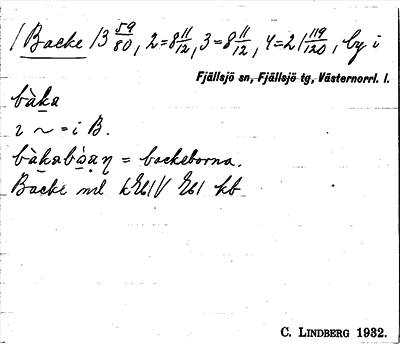 1 Backe 13 59/80, 2=8 11/12, 3=8 11/12, 4=21 119/120, by i
Fjällsjö sn, Fjällsjö tg, Västernorrl. l.
bàka
ı ~ = i B.
bàkabòaŋ = backeborna.
Backe ml kb
C. LINDBERG 1932.